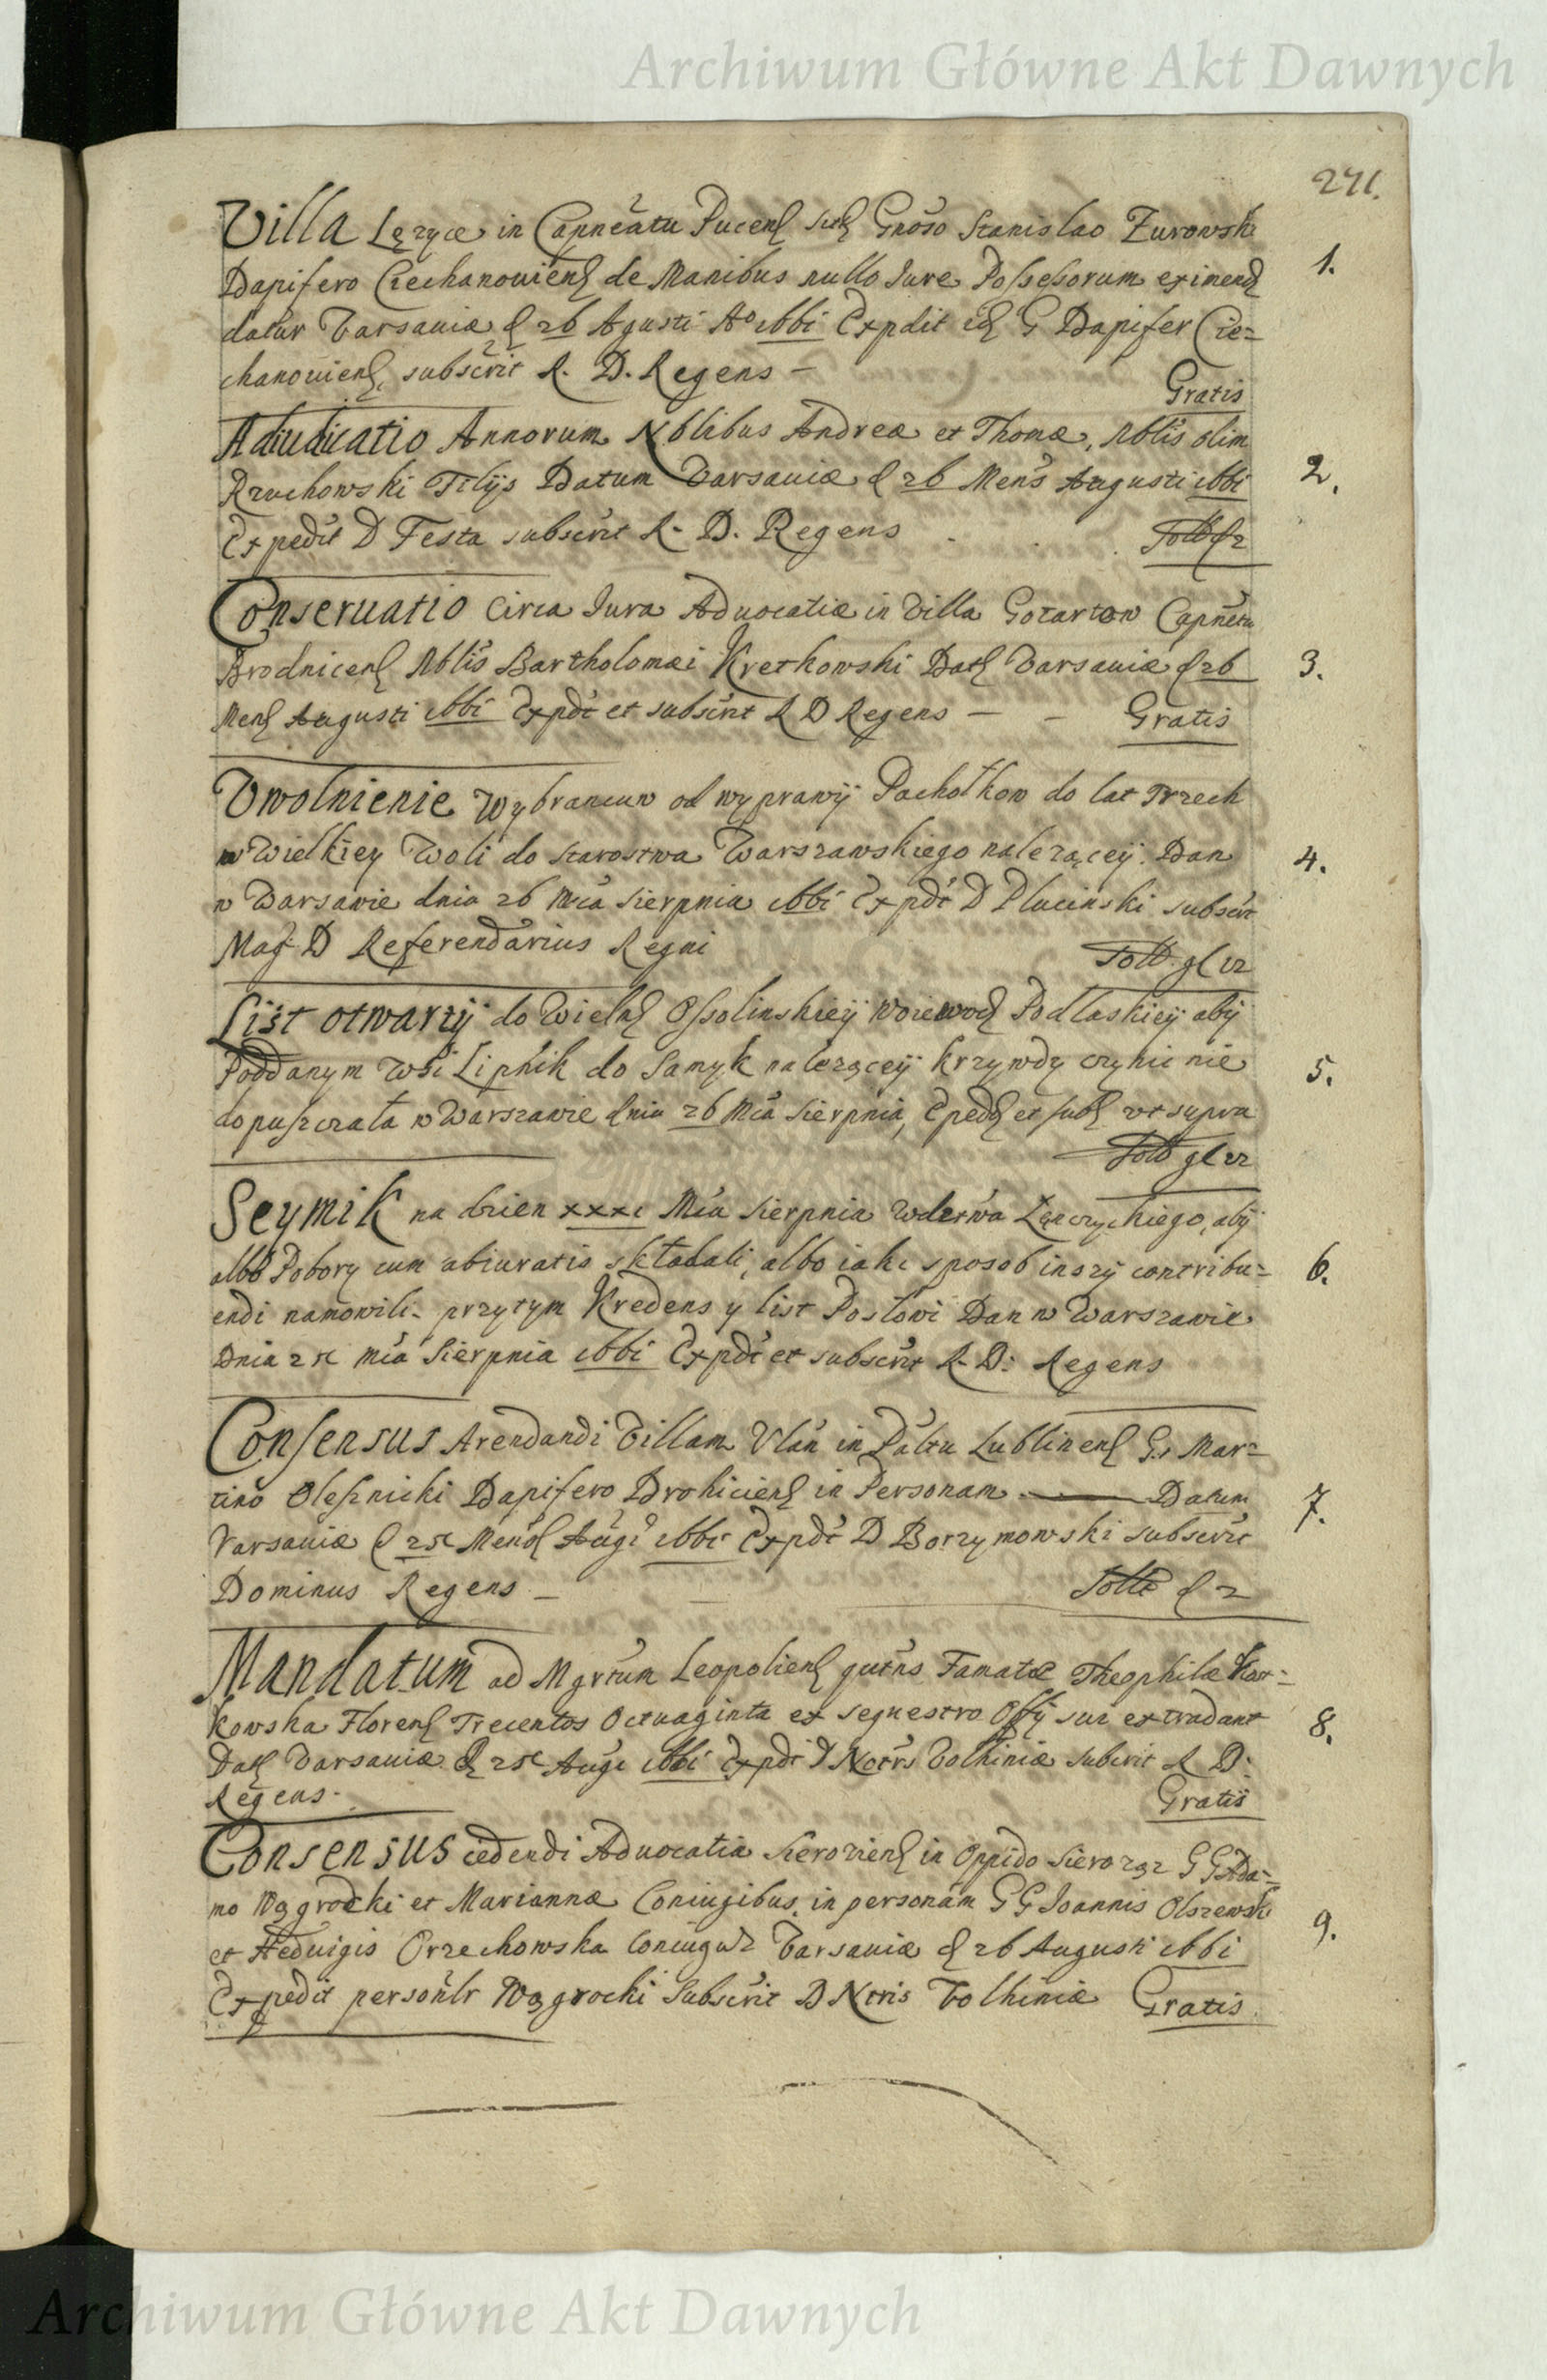 Archiwum Główne Akt Dawnych
271.
Villa Lęzyce in Capneatu Pucens Gnoso Stanislao Zurowski
1.
Dapifero Ciechanouiens de Manibus nullo Iure Possessorum eximend
datur Varsauiæ d 26 Agusti Ao 1661 Expdit G Dapifer Cie=
chanouiens, subscrit R. D. Regens –
Gratis
Adiudicatio Annorum Nblibus Andreæ et Thomæ, Nblis olim
2.
Rzuchowski Filijs Datum Varsauiæ d 26 Mens Augusti 1661
Expedit D Festa subscrit R. D. Regens
Solt f 2
Conseruatio circa Iura Aduocatiæ in Villa Gotartow Capnetu
Brodnicens Nblis Bartholomæi Kretkowski Dat Varsauiæ d 26
3.
Mens Augusti 1661 Expdt et subscrit R D Regens – – Gratis
Vwolnienie Wybrancuw od wyprawÿ Pachołkow do lat trzech
w Wielkiey Woli do starostwa Warszawskiego nalezącÿ. Dan
4.
w Warsawie dnia 26 Mca Sierpnia 1661 Expdt D Plucinski subscrit
Mag D Referendarius Regni
Solt gl 12
List otwartÿ do Wielm Ossolinskieÿ Woiewod Podlaskieÿ abÿ
Poddanym Wsi Lipnik do Samyk nalezącÿ krzywdy czynic nie
5.
dopuszczała w Warszawie dnia 26 Mca Sierpnia, Exped et subs vt supra
Solt gl 12
Seymik na dzien xxxi Mca Sierpnia Wdztwa Łęczyckiego, abÿ
albo Pobory cum abiuratis składali, albo iaki sposob inszÿ contribu=
6.
endi namowili. przytym Kredens y list Posłowi Dan w Warszawie
Dnia 25 mca Sierpnia 1661 Expdt et subscrit R. D: Regens
Consensus Arendandi Villam Vlan in Paltu Lublinens Gs Mar=
tino Olesznicki Dapifero Drohiciens in Personam — Datum
7.
Varsauiæ d 25 Mens Augi 1661 Expdt D Borzymowski subscrit
Dominus Regens –
Solt f 2
Mandatum ad Mgrtum Leopoliens qutns Famatæ Theophilæ Kor=
kowska Florens Trecentos Octuaginta ex sequestro Offÿ sui extradant
8.
Dat Varsauiæ d 25 Augi 1661 Expdt D Notrs Volhiniæ subcrit R D.
Regens.
Gratis
Consensus cedendi Aduocatia Sieroziens in Oppido Sierozą GG Ada=
mo Wągrodzki et Mariannæ Coniugibus, in personam GG Ioannis Olszewski
9.
et Heduigis Orzechowska Coniugu Varsauiæ d 26 Augusti 1661
Expedit personlr Wągrocki Subscrit D Ntris Volhiniæ Gratis
Archiwum Główne Akt Dawnych